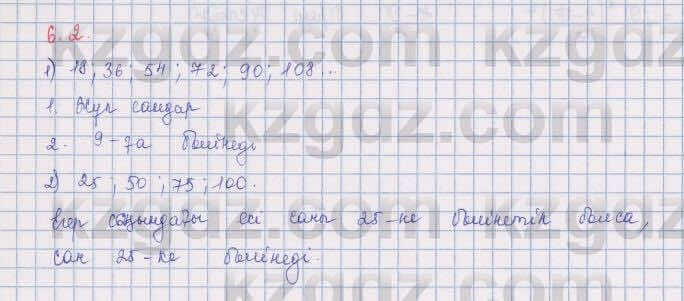 6.2.
1) 18; 36; 54; 72; 90; 108...
1. Жұп сандар
2. 9-ға бөлінеді
2) 25; 50; 75; 100.
Егер соңындағы екі саны 25-ке бөлінетін болса,
сан 25-ке бөлінеді.
kzgdz.com